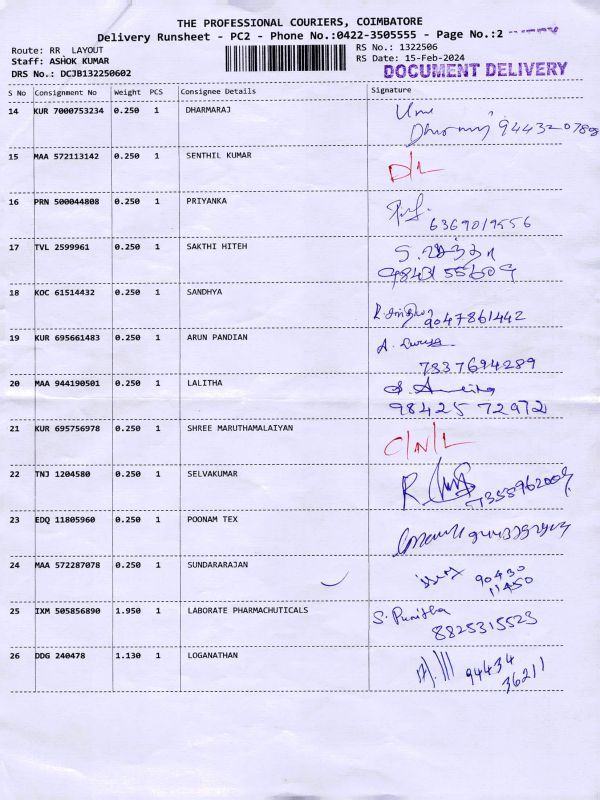 THE PROFESSIONAL COURIERS, COIMBATORE
Delivery Runsheet - PC2 - Phone No.:0422-3505555 - Page No.:2
Route: RR LAYOUT
RS No.: 1322506
Staff: ASHOK KUMAR
RS Date: 15-Feb-2024
DRS No.: DCJB132250602
DOCUMENT DELIVERY
S No Consignment No Weight PCS Consignee Details Signature
14 KUR 7000753234 0.250 1 DHARMARAJ
Uma
Dharmaraj
15 MAA 572113142 0.250 1 SENTHIL KUMAR D/L
16 PRN 500044808 0.250 1 PRIYANKA
6369019556
17 TVL 2599961 0.250 1 SAKTHI HITEH
9843155609
18 KOC 61514432 0.250 1 SANDHYA
9047861442
19 KUR 695661483 0.250 1 ARUN PANDIAN
7337694289
20 MAA 944190501 0.250 1 LALITHA
98425 72972
21 KUR 695756978 0.250 1 SHREE MARUTHAMALAIYAN C/N/L
22 TNJ 1204580 0.250 1 SELVAKUMAR
23 EDQ 11805960 0.250 1 POONAM TEX
24 MAA 572287078 0.250 1 SUNDARARAJAN
90430
11450
25 IXM 505856890 1.950 1 LABORATE PHARMACHUTICALS
S. Punitha
8825315523
26 DDG 240478 1.130 1 LOGANATHAN
94434
36211